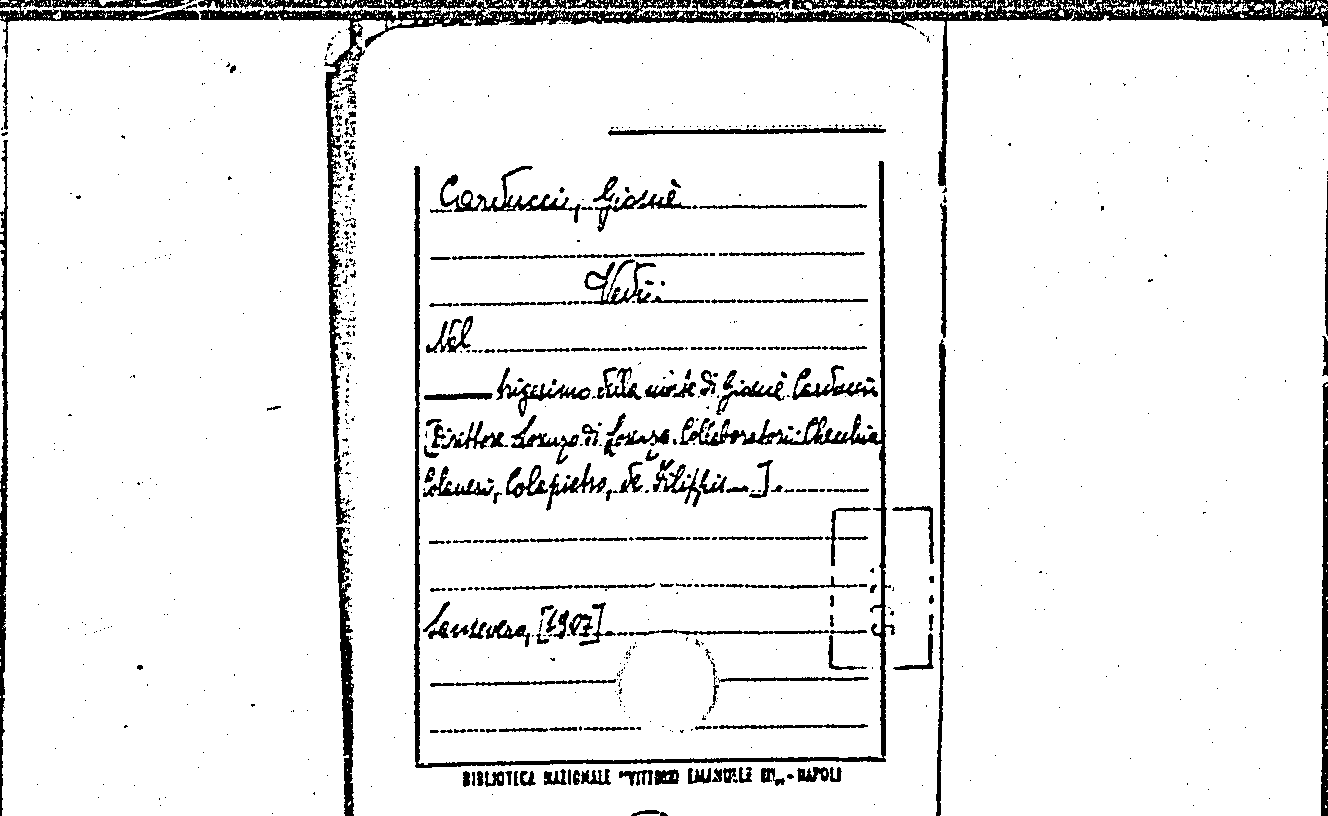 Carducci, Giosuè
Vedi:
Nel
trigesimo della morte di Giosuè Carducci
[Direttore Lorenzo di Lorenzo. Collaboratori: Checchia
Colanesi, Colapietro, de Filippis...].
Sansevero, [1907].
BIBLIOTECA NAZIONALE "VITTORIO EMANUELE III„ - NAPOLI